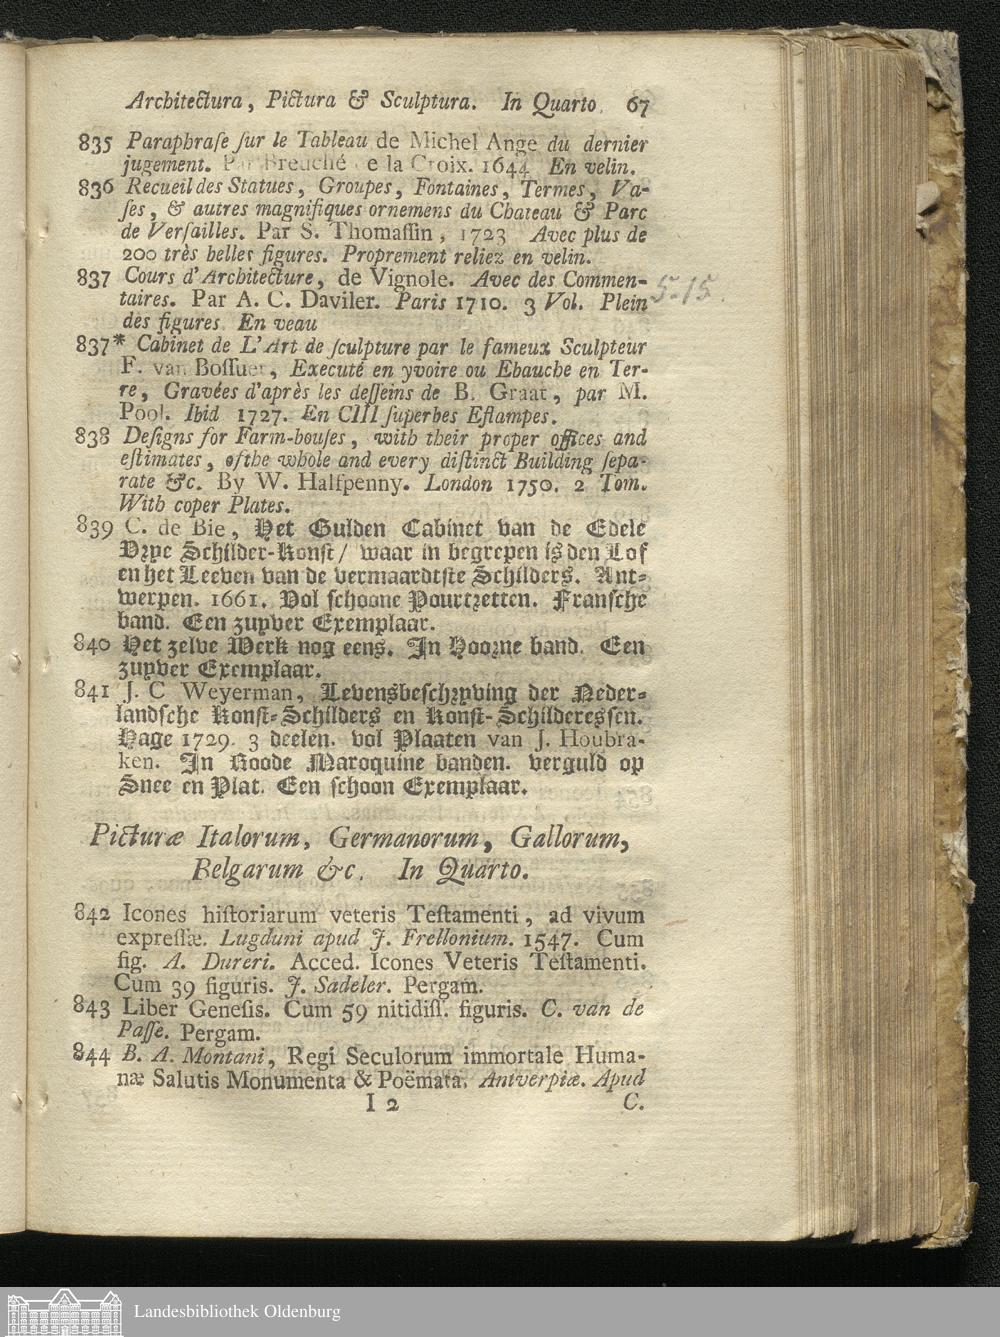 Architectura, Pictura & Sculptura. In Quarto. 67
835 Paraphrase sur le Tableau de Michel Ange du dernier
jugement. Par Breuché de la Croix. 1644 En velin.
836 Recueil des Statues, Groupes, Fontaines, Termes, Va-
ses, & autres magnifiques ornemens du Chateau & Parc
de Versailles. Par S. Thomassin, 1723 Avec plus de
200 très belles figures. Proprement reliez en velin.
837 Cours d'Architecture, de Vignole. Avec des Commen-
taires. Par A. C. Daviler. Paris 1710. 3 Vol. Plein 5-15.
des figures. En veau
837* Cabinet de L'Art de sculpture par le fameux Sculpteur
F. van Bossuet, Executé en yvoire ou Ebauche en Ter-
re, Gravées d'après les desseins de B. Graat, par M.
Pool. Ibid 1727. En CIII superbes Estampes.
838 Designs for Farm-houses, with their proper offices and
estimates, ofthe whole and every distinct Building sepa-
rate &c. By W. Halfpenny. London 1750. 2 Tom.
With coper Plates.
839 C. de Bie, Het Gulden Cabinet van de Edele
Vrye Schilder-Konst/ waar in begrepen is den Lof
en het Leeven van de vermaardtste Schilders. Ant-
werpen. 1661. Vol schoone Pourtretten. Fransche
band. Een zuyver Exemplaar.
840 Het zelve Werk nog eens. In Hoorne band. Een
zuyver Exemplaar.
841 J. C Weyerman, Levensbeschryving der Neder-
landsche Konst-Schilders en Konst-Schilderessen.
Hage 1729. 3 deelen. vol Plaaten van J. Houbra-
ken. In Roode Maroquine banden. verguld op
Snee en Plat. Een schoon Exemplaar.
Picturæ Italorum, Germanorum, Gallorum,
Belgarum &c. In Quarto.
842 Icones historiarum veteris Testamenti, ad vivum
expressæ. Lugduni apud J. Frellonium. 1547. Cum
fig. A. Dureri. Acced. Icones Veteris Testamenti.
Cum 39 figuris. J. Sadeler. Pergam.
843 Liber Genesis. Cum 59 nitidiss. figuris. C. van de
Passe. Pergam.
844 B. A. Montani, Regi Seculorum immortale Huma-
næ Salutis Monumenta & Poëmata. Antverpiæ. Apud
I 2 C.
Landesbibliothek Oldenburg